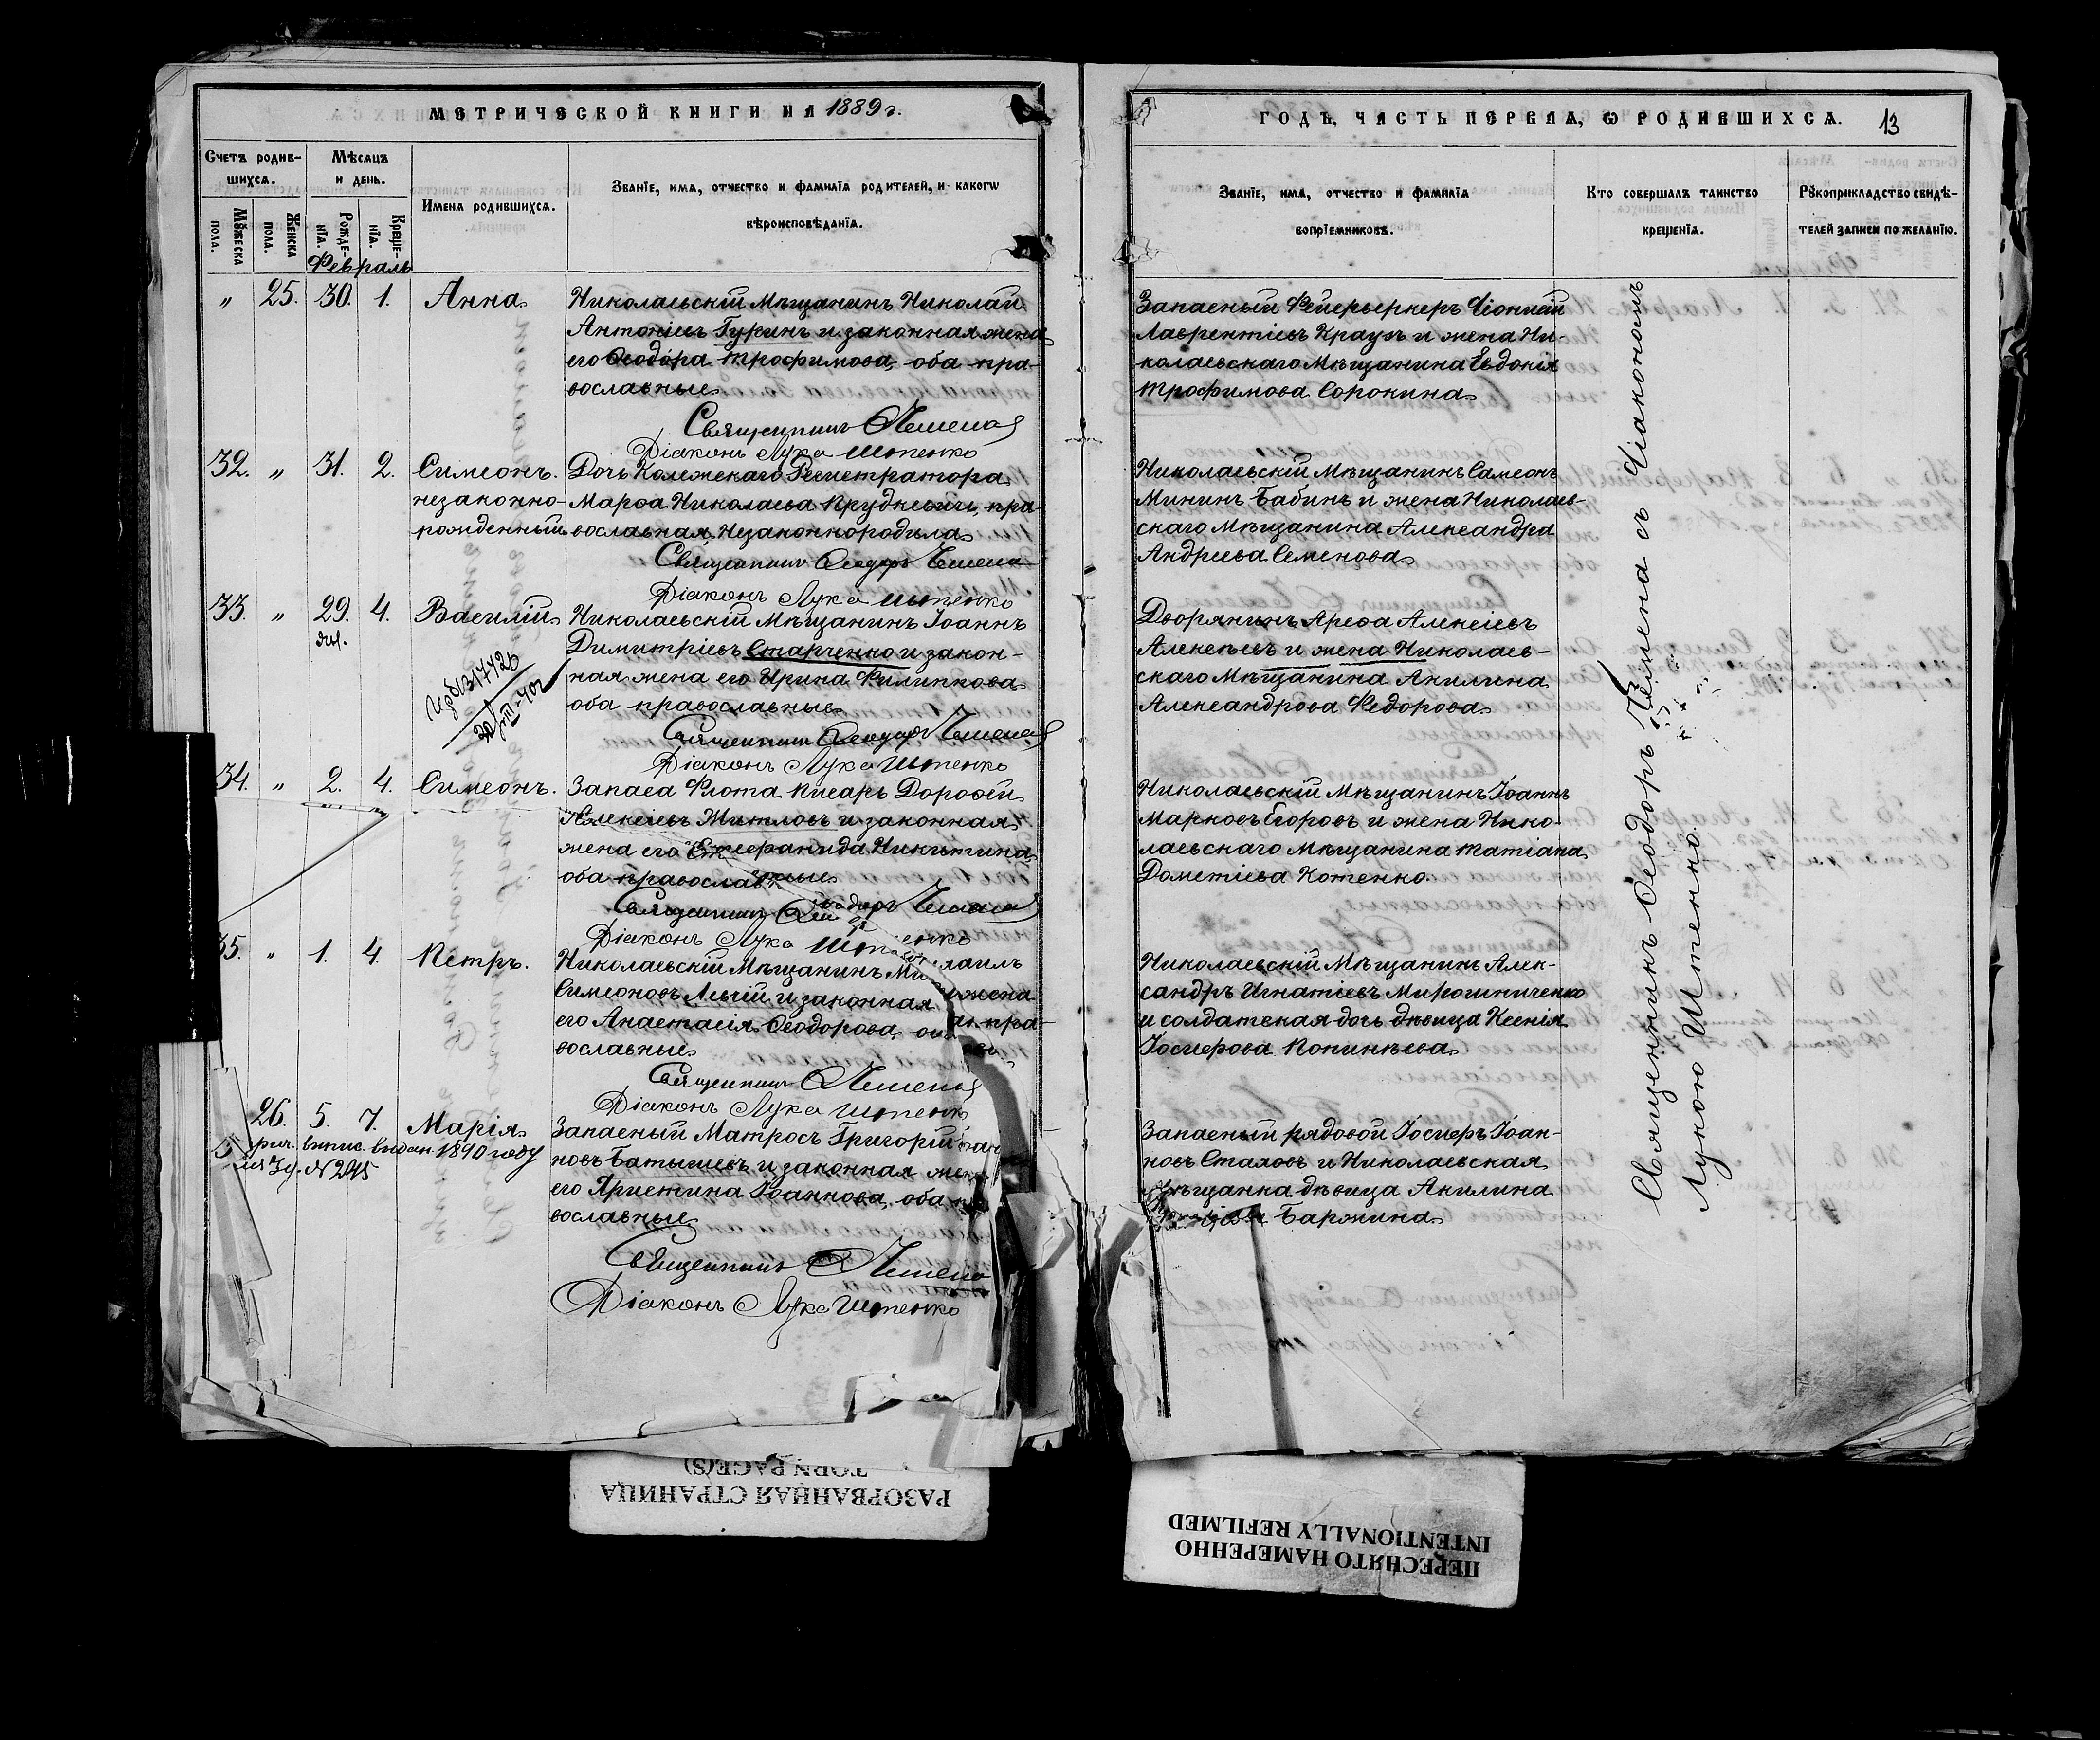 МЕТРИЧЕСКОЙ КНИГИ НА 1889 г.
Счетъ родив-
шихся.
Мѣсяцъ
и день.
Имена родившихся.
Званіе, имя, отчество и фамилія родителей, и какогѡ
вѣроисповѣданія.
Мꙋжеска
пола.
Женска
пола.
Рожде-
нія.
Креще-
нія.
Февраль
" 25. 30. 1. Анна
Николаевскій Мѣщанинъ Николай
Антоніевъ Гуринъ и законная жена
его Ѳеодора Трофимова, оба пра-
вославные
Священникъ
Діаконъ Лука Штенко
32. " 31. 2. Симеонъ.
незаконно-
рожденный
Дочь Колежскаго Регистратора
Марѳа Николаева пра-
вославная, Незаконнородила
Священникъ Ѳеодоръ
Діаконъ Лука Штенко
33. " 29. 4. Василій
Янв.
Николаевскій Мѣщанинъ Іоаннъ
Димитріевъ Старченко и закон-
ная жена его Ирина Филиппова
оба православные
Священникъ Ѳеодоръ
Діаконъ Лука Штенко
34. " 2. 4. Симеонъ.
Запаса Флота писарь Дороѳей
Алексіевъ Житловъ и законная
жена его Никитина
оба православные
Священникъ Ѳеодоръ
Діаконъ Лука Штенко
35. " 1. 4. Петръ.
Николаевскій Мѣщанинъ Михаилъ
Симеоновъ и законная жена
его Анастасія Ѳеодорова, оба пра-
вославные
Священникъ
Діаконъ Лука Штенко
26. 5. 7. Марія
выпис. выдан. 1890 году
№ 2015
Запасный Матросъ Григорій
новъ Батышевъ и законная жена
его Христина Іоаннова, оба
вославные
Священникъ
Діаконъ Лука Штенко
ГОДЪ, ЧАСТЬ ПЕРВАЯ, Ѡ РОДИВШИХСЯ. 13
Званіе, имя, отчество и фамилія
воспріемниковъ.
Кто совершалъ таинство
крещенія.
Рꙋкоприкладство свидѣ-
телей записи по желанію.
Запасный Фейерверкеръ Діонисій
Лаврентіевъ Краузъ и жена Ни-
колаевскаго Мѣщанина Евдокія
Трофимова Сорокина
Николаевскій Мѣщанинъ Самсонъ
Мининъ Бабинъ и жена Николаев-
скаго Мѣщанина Александра
Андреева Семенова
Дворянинъ Арефа Алексіевъ
Алексѣевъ и жена Николаев-
скаго Мѣщанина Акилина
Александрова Федорова
Николаевскій Мѣщанинъ Іоаннъ
Марковъ Егоровъ и жена Нико-
лаевскаго Мѣщанина Татіана
Дометіева Котенко.
Николаевскій Мѣщанинъ Алек-
сандръ Игнатіевъ Мирошниченко
и солдатская дочь дѣвица Ксенія
Іосифова
Запасный рядовой Іосифъ Іоан-
новъ Стаховъ и Николаевская
мѣщанка дѣвица Акилина
Баржина
Священникъ Ѳеодоръ съ Діакономъ
Лукою Штенко.
РАЗОРВАННАЯ СТРАНИЦА
TORN PAGE(S)
ПЕРЕСНЯТО НАМЕРЕННО
INTENTIONALLY REFILMED